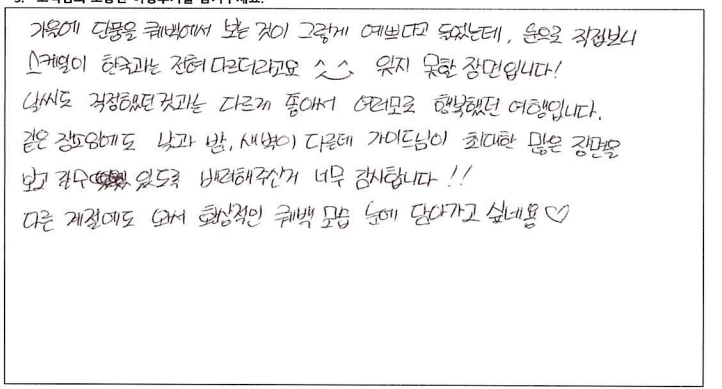 가을에 단풍을 퀘벡에서 보는 것이 그렇게 예쁘다고 들었는데, 눈으로 직접보니
스케일이 한국과는 전혀 다르더라고요 ^^ 잊지 못할 장면입니다!
날씨도 걱정했던것과는 다르게 좋아서 여러모로 행복했던 여행입니다.
같은 장소임에도 낮과 밤, 새벽이 다른데 가이드님이 최대한 많은 장면을
보고 갈수 있도록 배려해주신거 너무 감사합니다!!
다른 계절에도 와서 환상적인 퀘백 모습 눈에 담아가고 싶네용♡